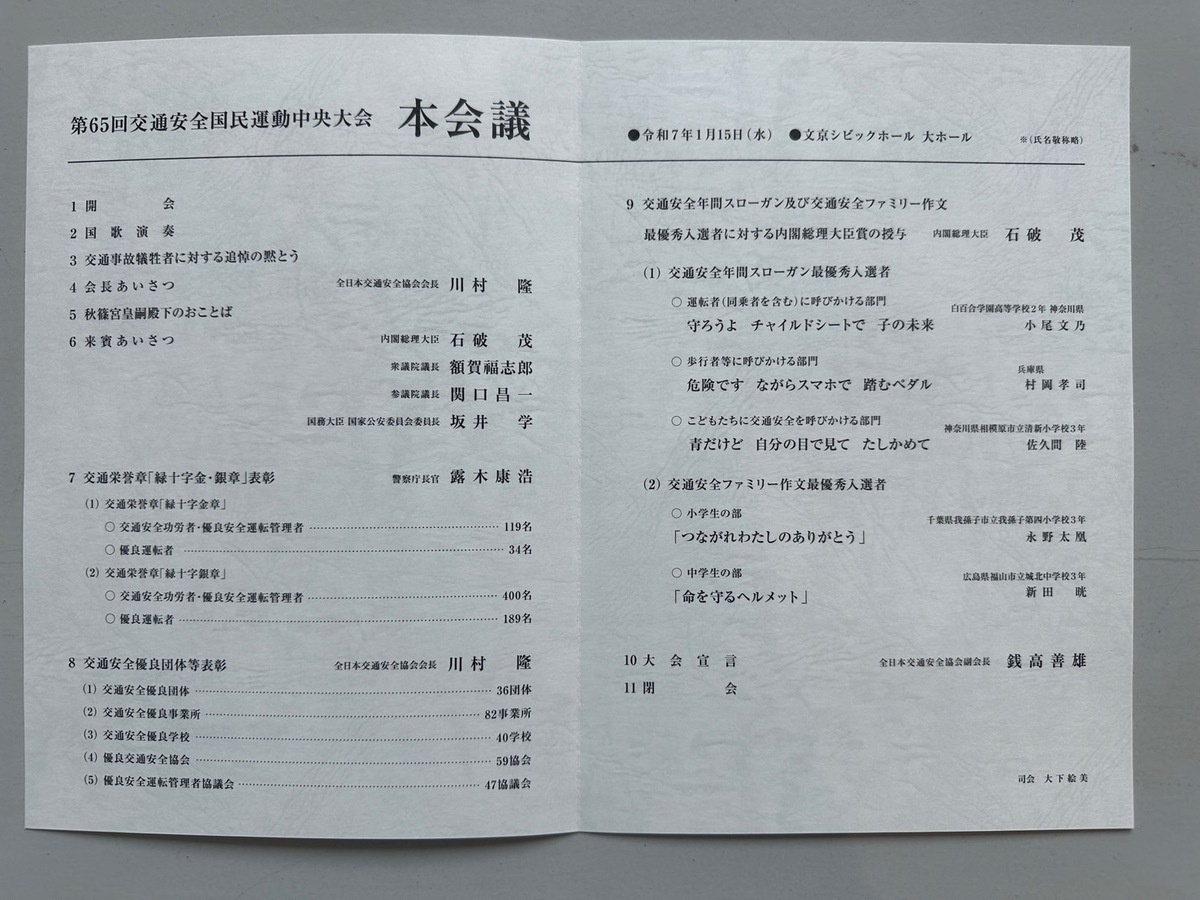 第65回交通安全国民運動中央大会 本会議
1 開会
2 国歌演奏
3 交通事故犠牲者に対する追悼の黙とう
4 会長あいさつ 全日本交通安全協会会長 川村 隆
5 秋篠宮皇嗣殿下のおことば
6 来賓あいさつ 内閣総理大臣 石破 茂
衆議院議長 額賀福志郎
参議院議長 関口昌一
国務大臣 国家公安委員会委員長 坂井 学
7 交通栄誉章「緑十字金・銀章」表彰 警察庁長官 露木康浩
(1) 交通栄誉章「緑十字金章」
○ 交通安全功労者・優良安全運転管理者 119名
○ 優良運転者 34名
(2) 交通栄誉章「緑十字銀章」
○ 交通安全功労者・優良安全運転管理者 400名
○ 優良運転者 189名
8 交通安全優良団体等表彰 全日本交通安全協会会長 川村 隆
(1) 交通安全優良団体 36団体
(2) 交通安全優良事業所 82事業所
(3) 交通安全優良学校 40学校
(4) 優良交通安全協会 59協会
(5) 優良安全運転管理者協議会 47協議会
●令和7年1月15日(水) ●文京シビックホール 大ホール ※(氏名敬称略)
9 交通安全年間スローガン及び交通安全ファミリー作文
最優秀入選者に対する内閣総理大臣賞の授与 内閣総理大臣 石破 茂
(1) 交通安全年間スローガン最優秀入選者
○ 運転者(同乗者を含む)に呼びかける部門
白百合学園高等学校2年 神奈川県
守ろうよ チャイルドシートで 子の未来 小尾文乃
○ 歩行者等に呼びかける部門
兵庫県
危険です ながらスマホで 踏むペダル 村岡孝司
○ こどもたちに交通安全を呼びかける部門
神奈川県相模原市立清新小学校3年
青だけど 自分の目で見て たしかめて 佐久間 陸
(2) 交通安全ファミリー作文最優秀入選者
○ 小学生の部
千葉県我孫子市立我孫子第四小学校3年
「つながれわたしのありがとう」 永野太凰
○ 中学生の部
広島県福山市立城北中学校3年
「命を守るヘルメット」 新田 晄
10 大会宣言 全日本交通安全協会副会長 銭高善雄
11 閉会
司会 大下絵美